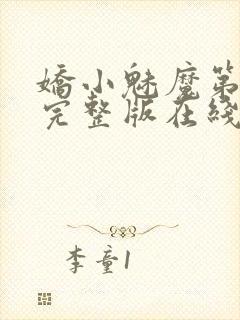 嬌小魅魔第
完整版在綫
李童1